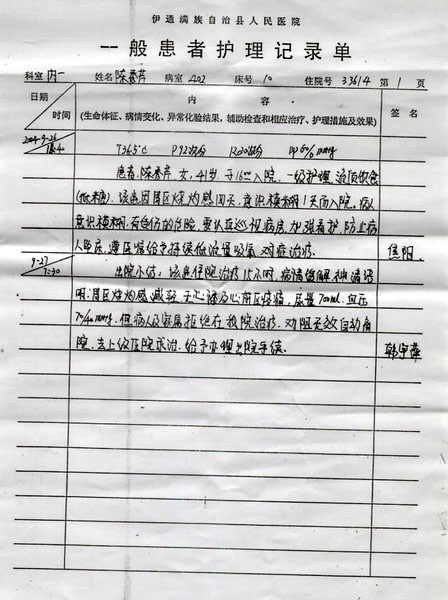 伊通满族自治县人民医院
一般患者护理记录单
科室 内一 姓名 陈秀芹 病室 402 床号 10 住院号 33614 第 1 页
日期 时间 内容 签名
(生命体征、病情变化、异常化验结果，辅助检查和相应治疗、护理措施及效果)
T36.5℃ P92次/分 R20次/分
患者,陈秀芹,女,41岁,于16:00入院,一级护理,流质饮食
(低糖).该患因胃区烧灼感四天,意识模糊1天而入院,病人
意识模糊,有自伤的危险,要求在巡视病房,加强看护,防止病
人坠床,遵医嘱给予持续低流量吸氧,对症治疗.
9-27
7:30
出院小结:该患住院治疗15小时,病情缓解,神清语
明,胃区烧灼感减轻,无心悸及心前区疼痛,尿量700ml,血压
70/40mmHg,但病人及家属拒绝在我院治疗,劝阻无效自动离
院,去上级医院求治,给予办理出院手续.